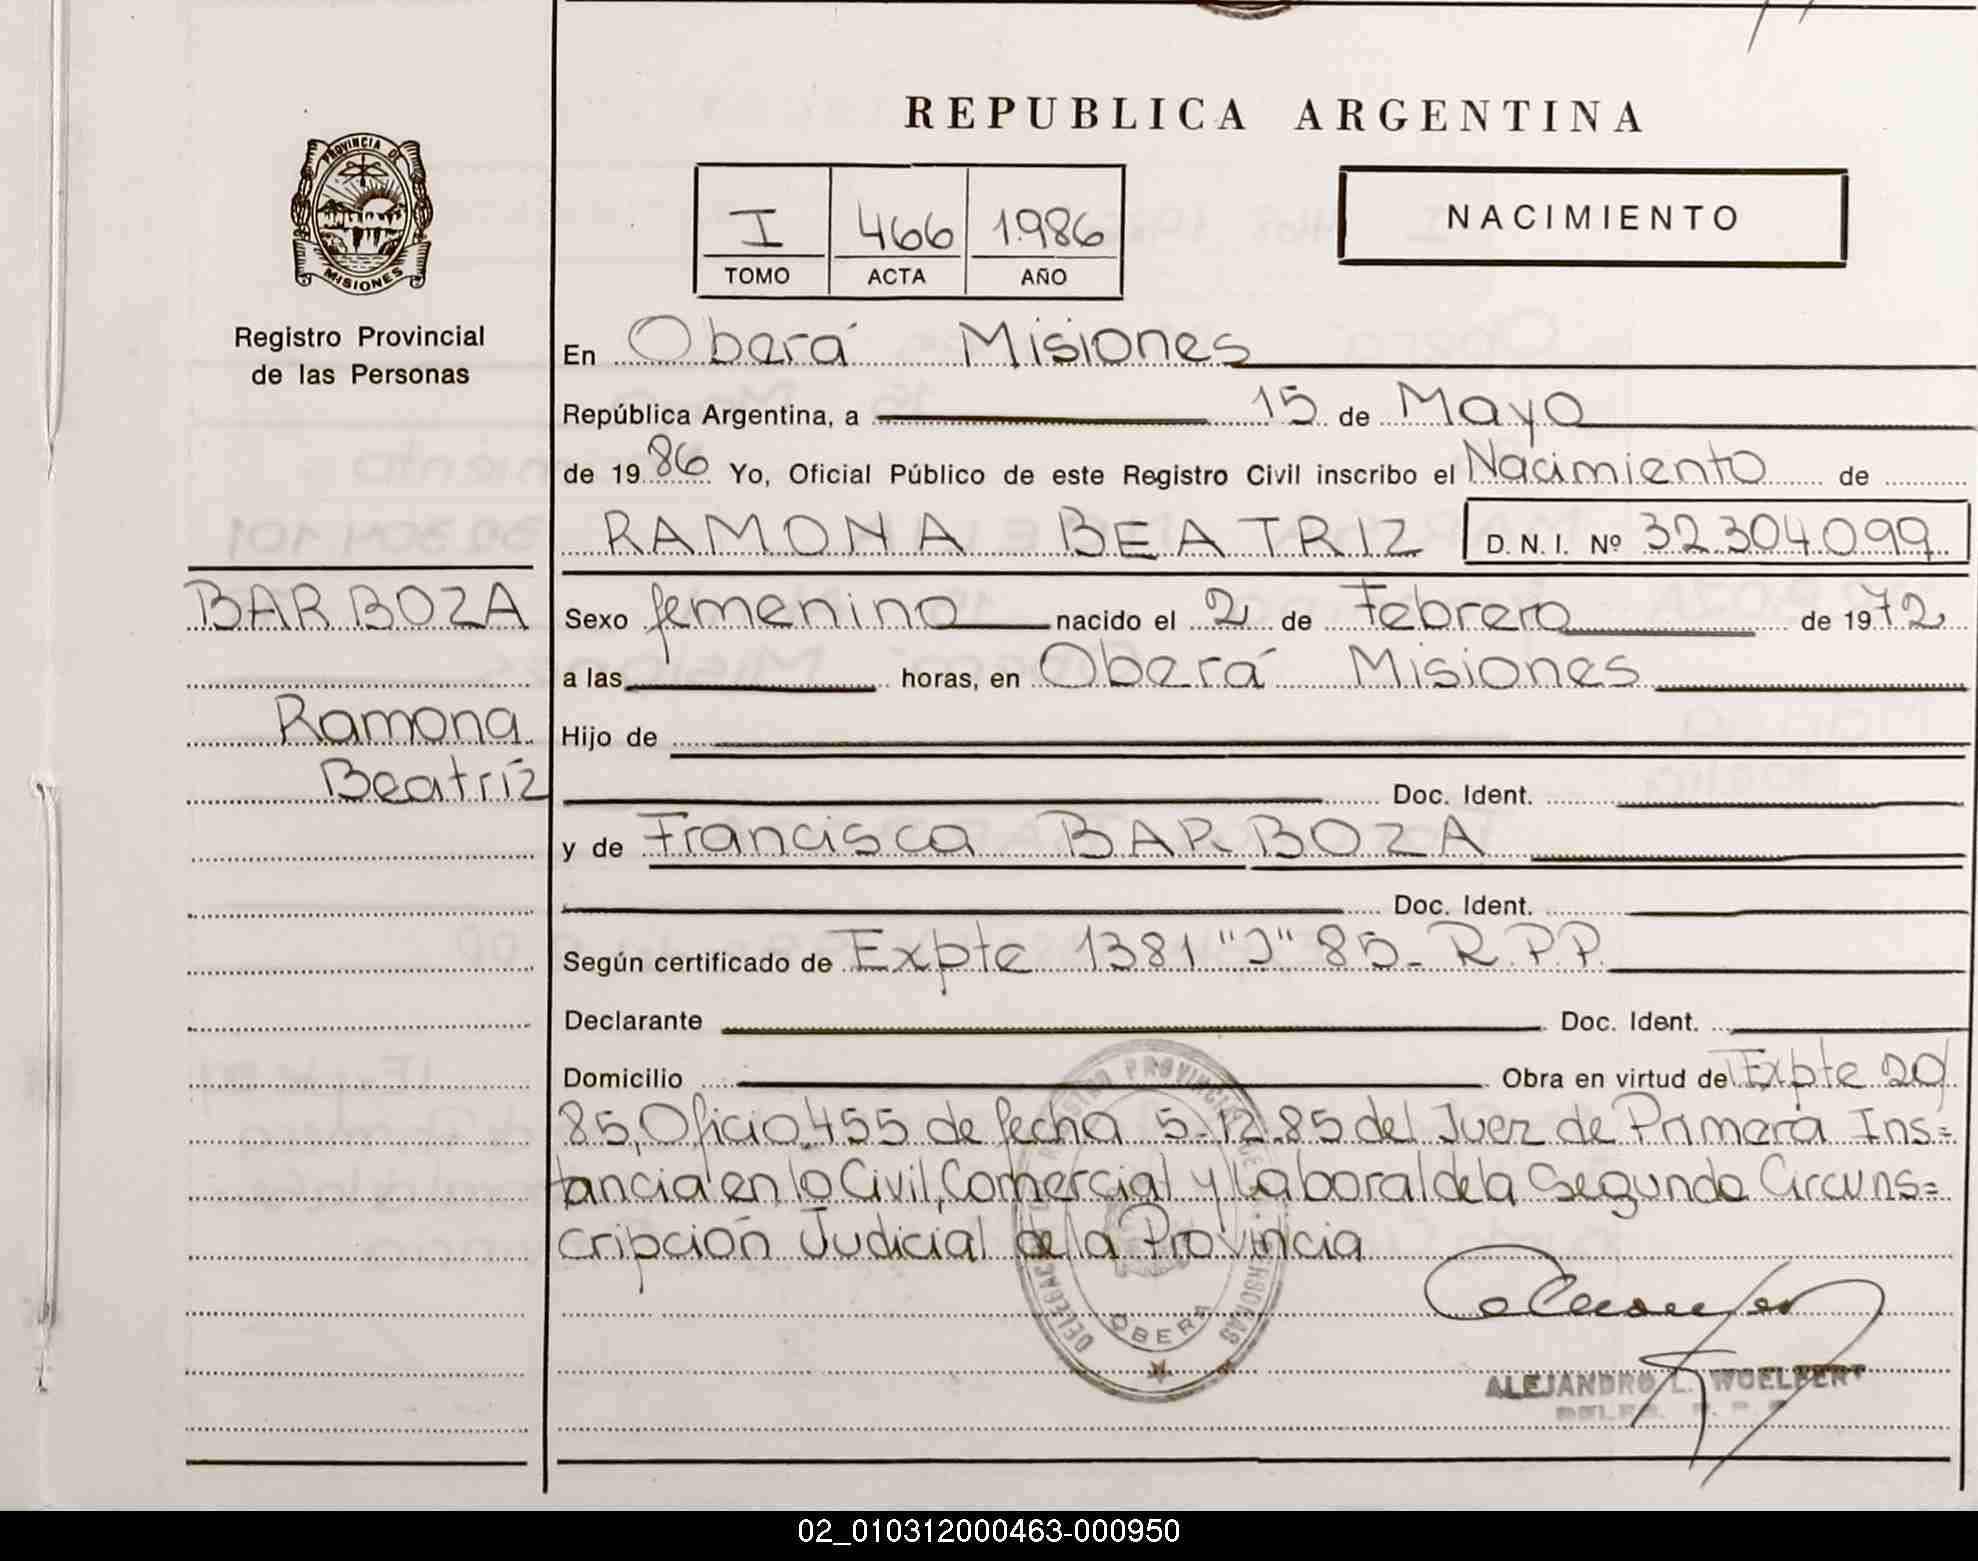 REPUBLICA ARGENTINA
PROVINCIA DE
MISIONES
Registro Provincial
de las Personas
I 466 1986
TOMO ACTA AÑO
NACIMIENTO
En Oberá Misiones
República Argentina, a 15 de Mayo
de 1986 Yo, Oficial Público de este Registro Civil inscribo el Nacimiento de
RAMONA BEATRIZ D. N. I. Nº 32.304.099
BARBOZA
Ramona
Beatriz
Sexo femenino nacido el 2 de Febrero de 1972
a las horas, en Oberá Misiones
Hijo de
Doc. Ident.
y de Francisca BARBOZA
Doc. Ident.
Según certificado de Expte 1381 "J" 85- R.P.P.
Declarante Doc. Ident.
Domicilio Obra en virtud de Expte 20/
85, Oficio 455 de fecha 5-12-85 del Juez de Primera Ins=
tancia en lo Civil, Comercial y Laboral de la Segunda Circuns=
cripción Judicial de la Provincia
REGISTRO PROVINCIAL DE
PERSONAS
OBERA
ALEJANDRO L. WOELFERT
02_010312000463-000950